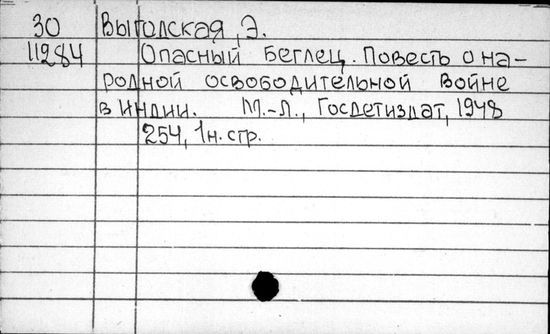 30 Выгодская, Э.
11284 Опасный беглец. Повесть о на-
родной освободительной войне
в Индии. М.-Л., Госдетиздат, 1948
254, 1н. стр.